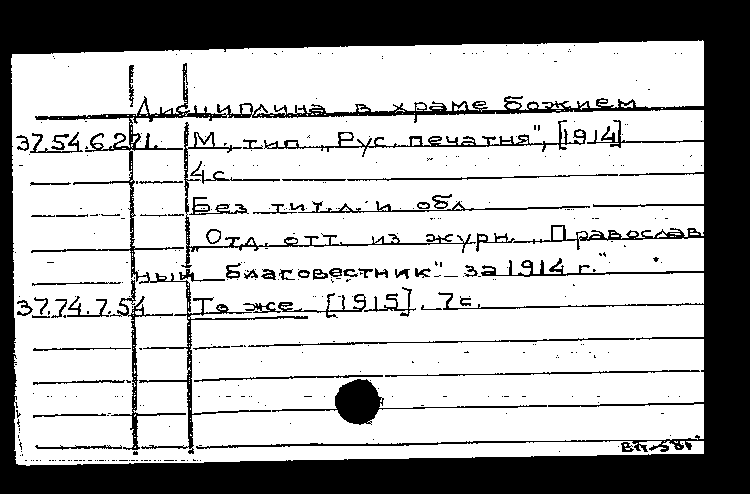 Дисциплина в храме божием
37.54.6.271. М., тип. „Рус. печатня", [1914]
4 с.
Без тит. л. и обл.
„Отд. отт. из журн. „Православ
ный благовестник" за 1914 г."
37.74.7.54 То же [1915]. 7 с.